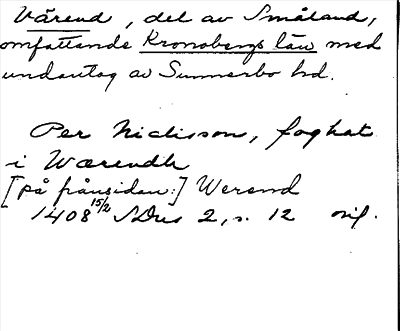 Värend, del av Småland,
omfattande Kronobergs län med
undantag av Sunnerbo hd.
Per Niclisson, foghat
i Wærendh
[på frånsidan:] Werend
1408 15/2 SDns 2, s. 12 orig.